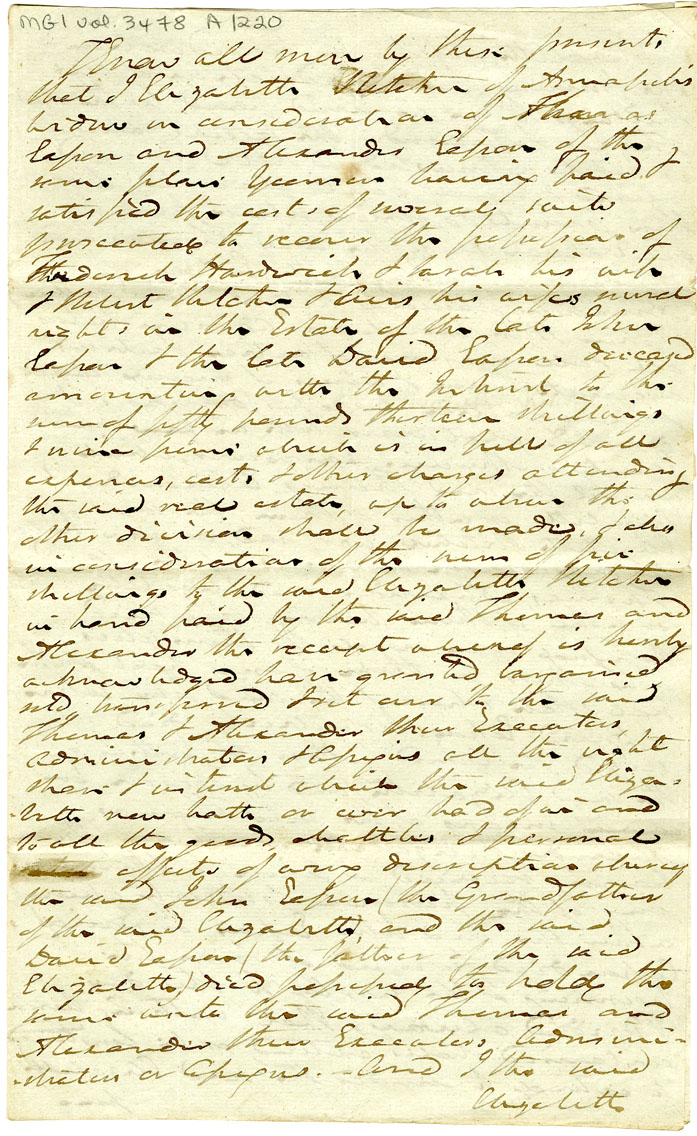 MG1 vol. 3478 A 1220
Know all men by these presents
that I Elizabeth Fletcher of Annapolis
widow in consideration of Thomas
Easson and Alexander Easson of the
same place Yeomen having paid &
satisfied the costs of several suits
prosecuted to recover the possession of
Frederick Hardwick & Sarah his wife
& Robert Fletcher & his wifes several
rights in the Estate of the late John
Easson & the late David Easson deceased
amounting with the Interest to the
sum of fifty pounds thirteen shillings
& nine pence which is in full of all
expences, costs & other charges attending
the said real estate up to when the
other division shall be made, & also
in consideration of the sum of five
shillings to the said Elizabeth Fletcher
in hand paid by the said Thomas and
Alexander the receipt whereof is hereby
acknowledged have granted bargained
sold, transferred & set over to the said
Thomas & Alexander their Executors,
Administrators & Assigns all the right
share & interest which the said Eliza-
-beth now hath or ever had of in and
to all the goods, chattles & personal
effects of every discription whereof
the said John Easson (the Grandfather
of the said Elizabeth) and the said
David Easson (the father of the said
Elizabeth) died possessed to hold the
same unto the said Thomas and
Alexander their Executors Admini-
-strators or Assigns. - And I the said
Elizabeth